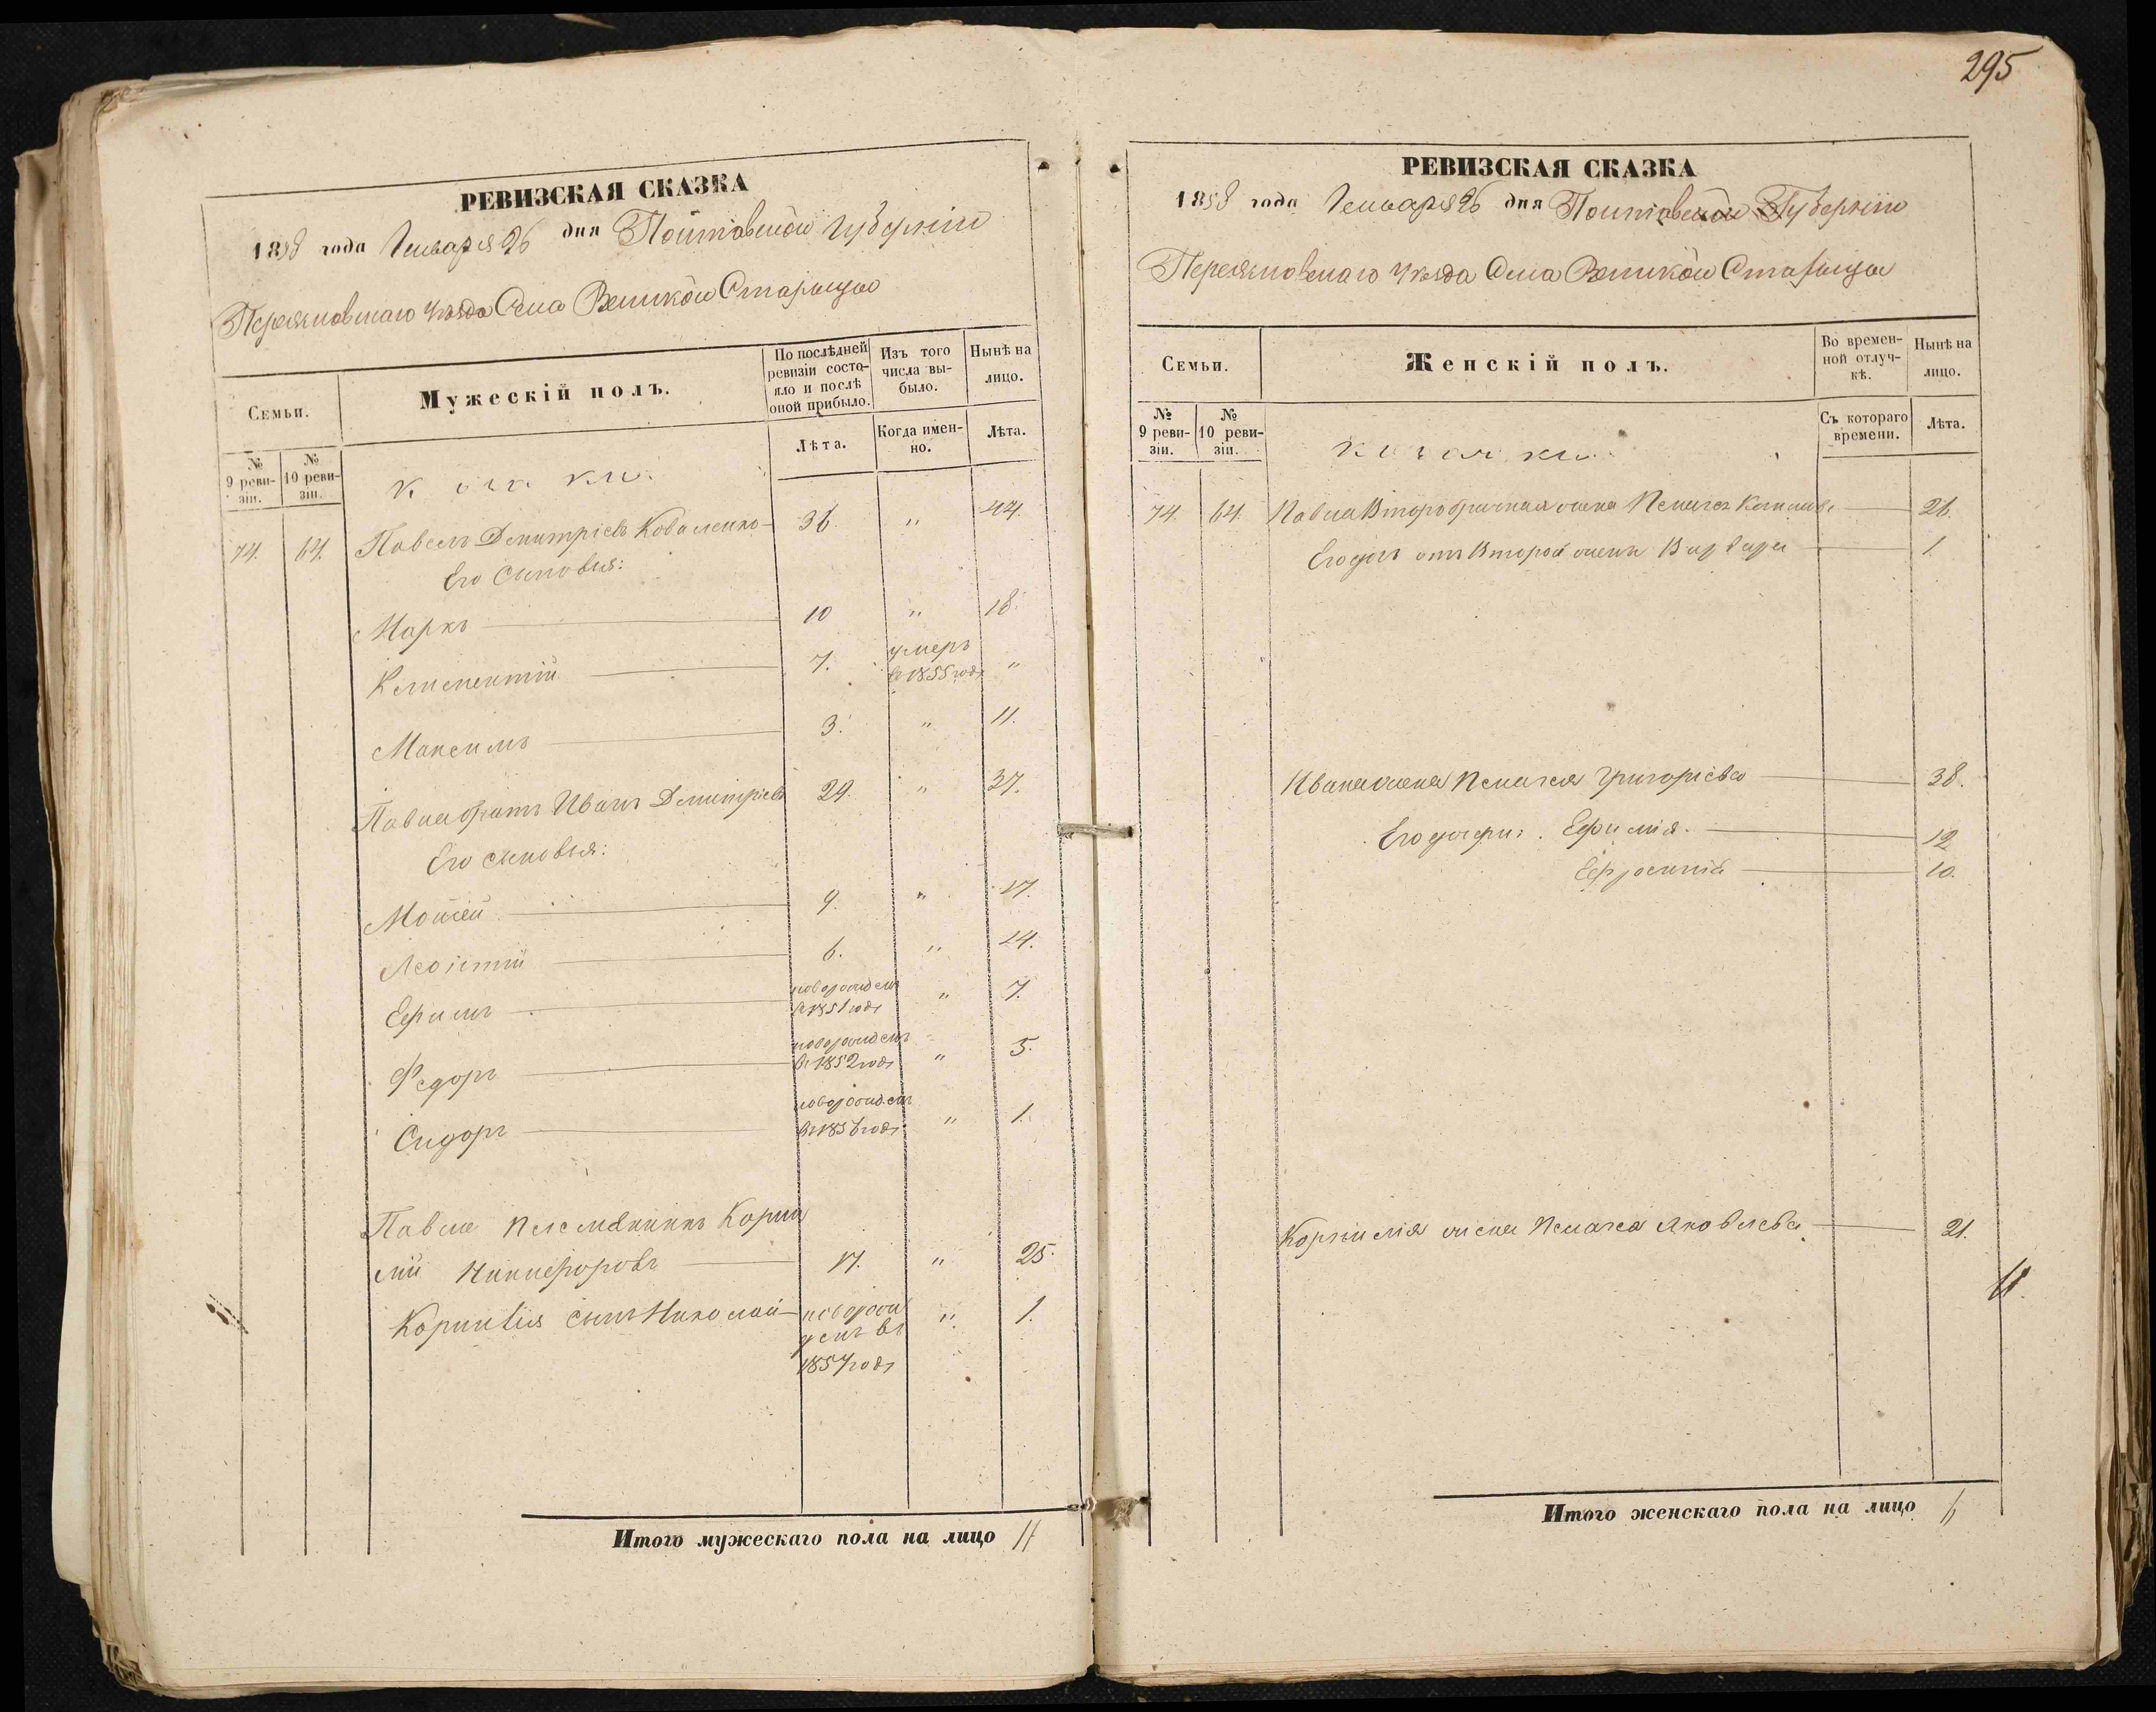 295
РЕВИЗСКАЯ СКАЗКА
1858 года Генваря 26 дня Полтавской Губерніи
Переяславскаго Уезда Села Великой Старицы
Семьи.
Мужескій полъ.
По послѣдней ревизіи состояло и послѣ оной прибыло.
Изъ того числа выбыло.
Нынѣ на лицо.
№ 9 ревизіи.
№ 10 ревизіи.
Лѣта.
Когда именно.
Лѣта.
74. 64. Павелъ Демитріевъ Коваленко 36. " 44.
Его Сыновья:
Маркъ 10 " 18.
Климентій 7. умеръ в 1855 годѣ "
Максимъ 3. " 11.
Павла братъ Иванъ Демитріевъ 29. " 37.
Его сыновья:
Моисей 9. " 17.
Леонтій 6. " 14.
Ефимъ новорожденъ в 1851 годѣ " 7.
Федоръ новорожденъ в 1852 годѣ " 5.
Сидоръ новорожден в 1856 годѣ " 1.
Павла племянникъ Корни
лий Никифоровъ 17. " 25.
Корнилія сынъ Николай новорож " 1.
денъ въ
1857 годѣ
Итого мужескаго пола на лицо 11
РЕВИЗСКАЯ СКАЗКА
1858 года Генваря 26 дня Полтавской Губерніи
Переяславскаго Уезда Села Великой Старицы
Семьи.
Женскій полъ.
Во временной отлучкѣ.
Нынѣ на лицо.
№ 9 ревизіи.
№ 10 ревизіи.
казачки
Съ котораго времени.
Лѣта.
74. 64. Павла Второбрачная жена Пелагея 26.
Его дочь отъ Второй жены Варвара 1.
Ивана жена Пелагея Григоріева 38.
Его дочери: Ефимія. 12
Ефросинія 10.
Корнилія жена Пелагея Яковлева 21.
Итого женскаго пола на лицо 6